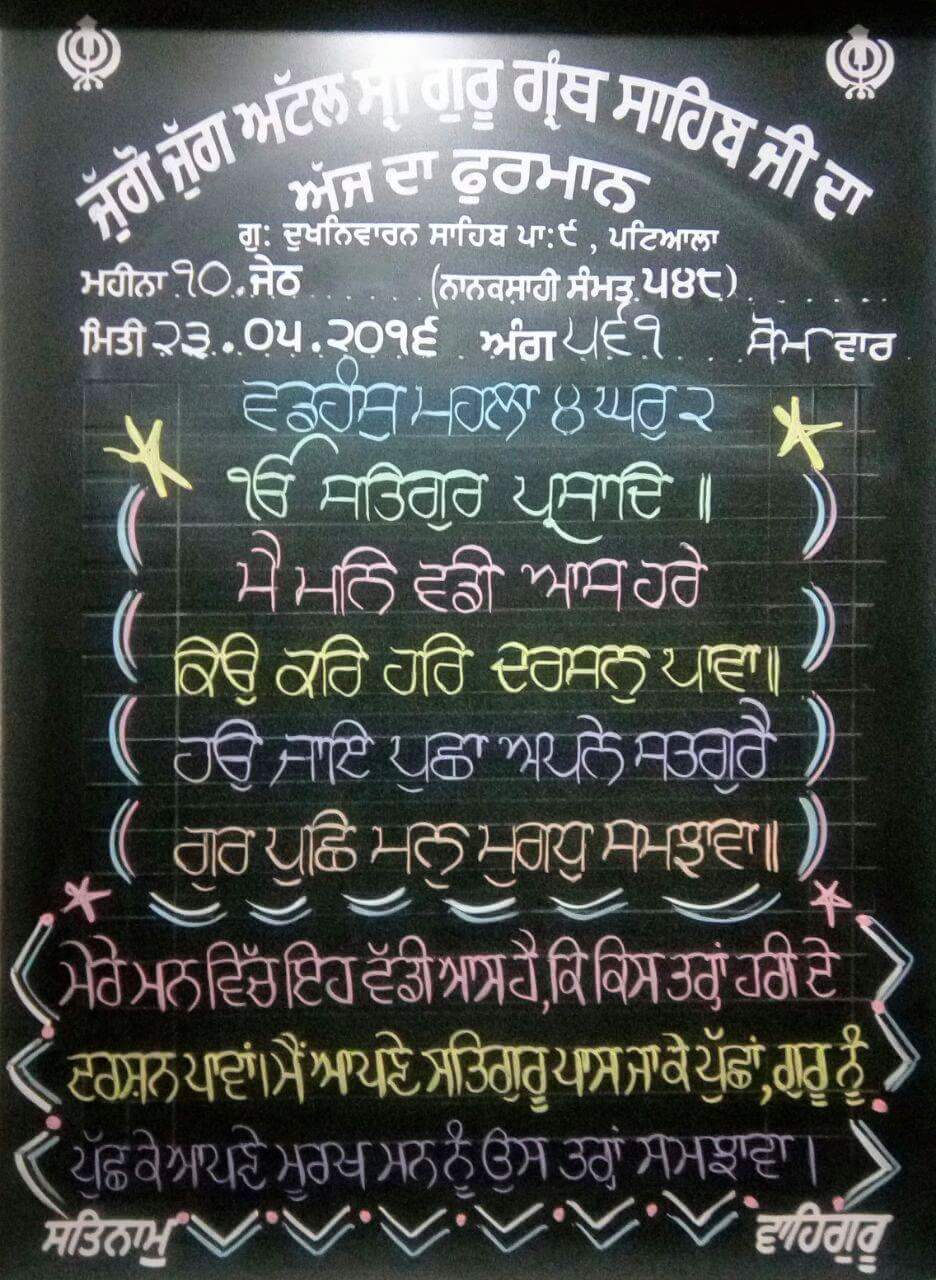 ਜੁੱਗੋ ਜੁੱਗ ਅਟੱਲ ਸ੍ਰੀ ਗੁਰੂ ਗ੍ਰੰਥ ਸਾਹਿਬ ਜੀ ਦਾ
ਅੱਜ ਦਾ ਫੁਰਮਾਨ
ਗੁ: ਦੁਖਨਿਵਾਰਨ ਸਾਹਿਬ ਪਾ:੯ , ਪਟਿਆਲਾ
ਮਹੀਨਾ ੧੦.ਜੇਠ (ਨਾਨਕਸ਼ਾਹੀ ਸੰਮਤ ੫੪੮)
ਮਿਤੀ ੨੩.੦੫.੨੦੧੬ ਅੰਗ ੫੬੧ ਸੋਮ ਵਾਰ
ਵਡਹੰਸੁ ਮਹਲਾ ੪ ਘਰੁ ੨
ੴ ਸਤਿਗੁਰ ਪ੍ਰਸਾਦਿ ॥
ਮੈ ਮਨਿ ਵਡੀ ਆਸ ਹਰੇ
ਕਿਉ ਕਰਿ ਹਰਿ ਦਰਸਨੁ ਪਾਵਾ॥
ਹਉ ਜਾਇ ਪੁਛਾ ਅਪਨੇ ਸਤਗੁਰੈ
ਗੁਰ ਪੁਛਿ ਮਨੁ ਮੁਗਧੁ ਸਮਝਾਵਾ॥
ਮੇਰੇ ਮਨ ਵਿੱਚ ਇਹ ਵੱਡੀ ਆਸ ਹੈ,ਕਿ ਕਿਸ ਤਰ੍ਹਾਂ ਹਰੀ ਦੇ
ਦਰਸ਼ਨ ਪਾਵਾਂ।ਮੈਂ ਆਪਣੇ ਸਤਿਗੁਰੂ ਪਾਸ ਜਾ ਕੇ ਪੁੱਛਾਂ,ਗੁਰੂ ਨੂੰ
ਪੁੱਛ ਕੇ ਆਪਣੇ ਮੂਰਖ ਮਨ ਨੂੰ ਉਸ ਤਰ੍ਹਾਂ ਸਮਝਾਵਾ।
ਸਤਿਨਾਮੁ ਵਾਹਿਗੁਰੂ